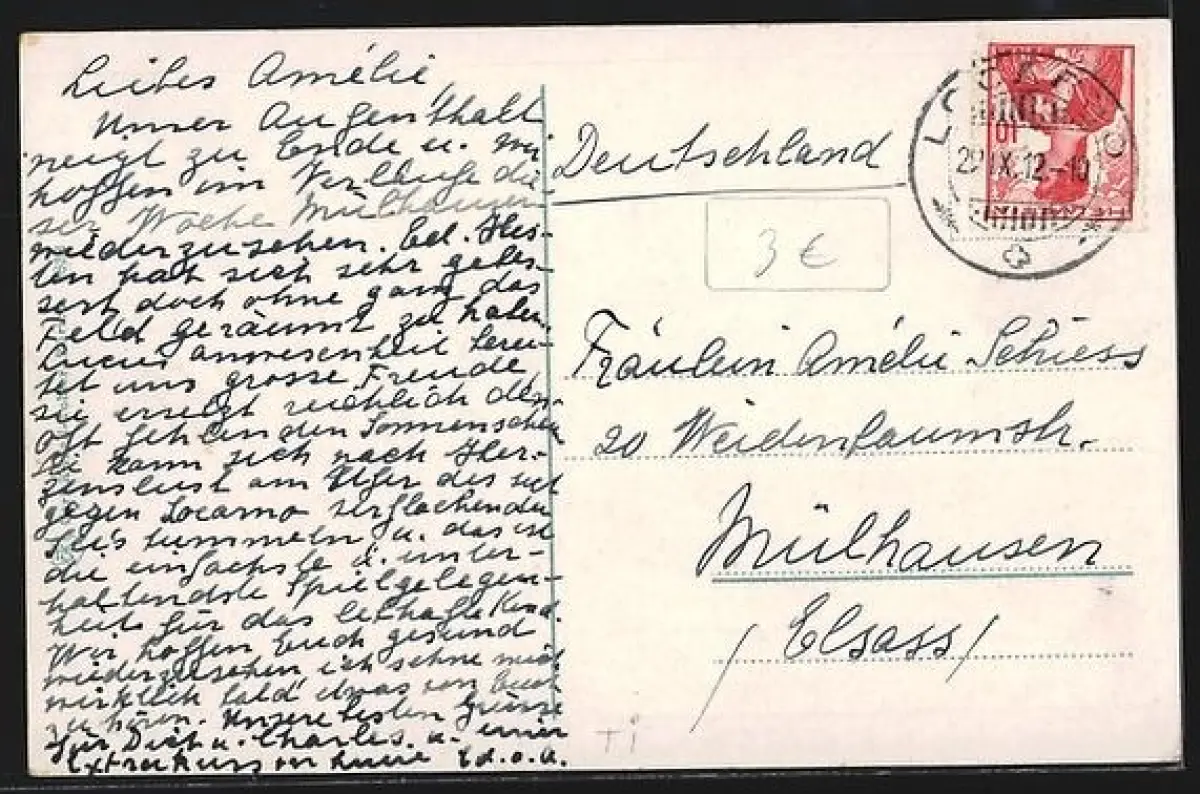 Liebes Amélie,
Unser Aufenthalt
neigt zu Ende u. wir
hoffen im Verlaufe die-
ser Woche Mülhausen
wiederzusehen. Ed. Hus-
ten hat sich sehr gebes-
sert doch ohne ganz das
Feld geräumt zu haben.
anwesenheit berei-
tet uns grosse Freude
sie ersetzt reichlich den
oft fehlenden Sonnenschein
Er kann sich nach Her-
zenslust am Ufer des sich
gegen Locarno verflachenden
Sees tummeln u. das ist
die einfachste u. unter-
haltendste Spielgelegen-
heit für das lebhafte Kind.
Wir hoffen Euch gesund
wiederzusehen ich sehne mich
wirklich bald etwas von Euch
zu hören. Unsere besten Grüsse
für Dich u. Charles. u. einen
Extrakuss von Ed. o. a.
Deutschland
LOCARNO
29.IX.12-10
10
3 €
Fräulein Amélie Schiess
20 Weidenbaumstr.
Mülhausen
/Elsass/
Ti